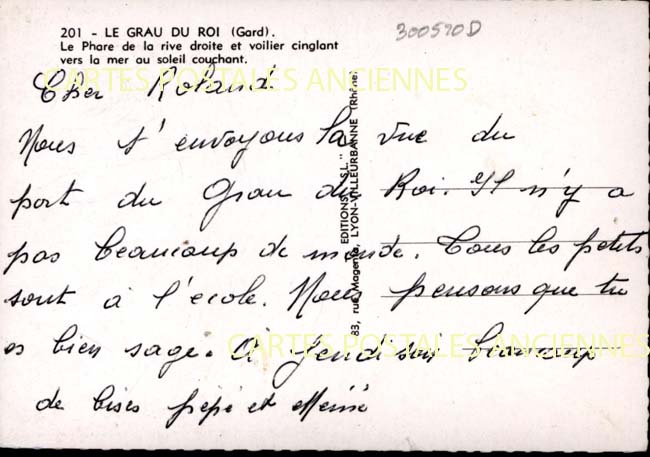 201 - LE GRAU DU ROI (Gard).
Le Phare de la rive droite et voilier cinglant
vers la mer au soleil couchant.
300590D
CARTES POSTALES ANCIENNES
Cher Roland
Nous t'envoyons la vue du
port du Grau du Roi. Il n'y a
pas beaucoup de monde. Tous les petits
sont à l'école. Nous pensons que tu
es bien sage. A jeudi soir beaucoup
de bises pépé et Mémé
EDITIONS "S.L."
83, rue Magenta, LYON-VILLEURBANNE (Rhône)
CARTES POSTALES ANCIENNES